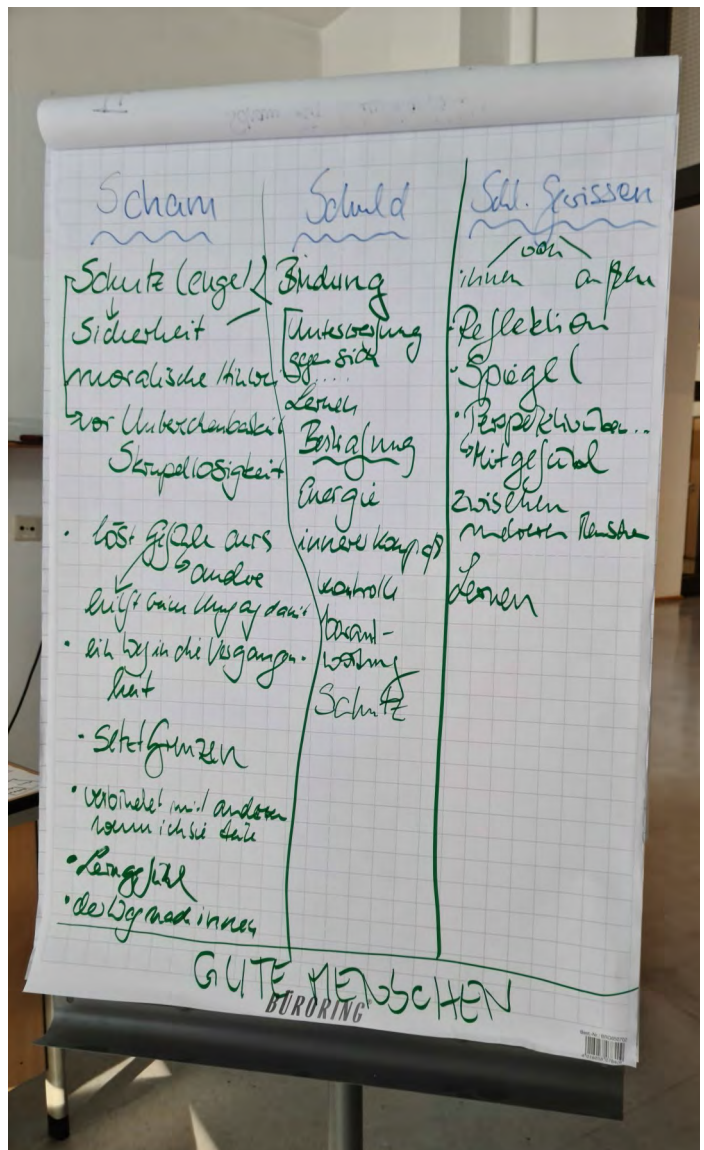 Scham
Schutz (engel)
Sicherheit
moralische
vor Unberechenbarkeit
Skrupellosigkeit
• löst Gefühle aus
andre
hilft beim Umgang damit
• ein Weg in die Vergangen-
heit
• setzt Grenzen
• verbindet mit anderen
wenn ich sie teile
• Lerngefühl
• der Weg nach innen
Schuld
Bindung
Unterwerfung
gegen sich
.....
Lernen
Bestrafung
Energie
innerer Kompaß
Kontrolle
Verant-
wortung
Schutz
Schl. Gewissen
von
innen außen
• Reflektion
• Spiegel
• Perspektivübern...
Mitgefühl
zwischen
mehreren Menschen
Lernen
GUTE MENSCHEN
BÜRORING